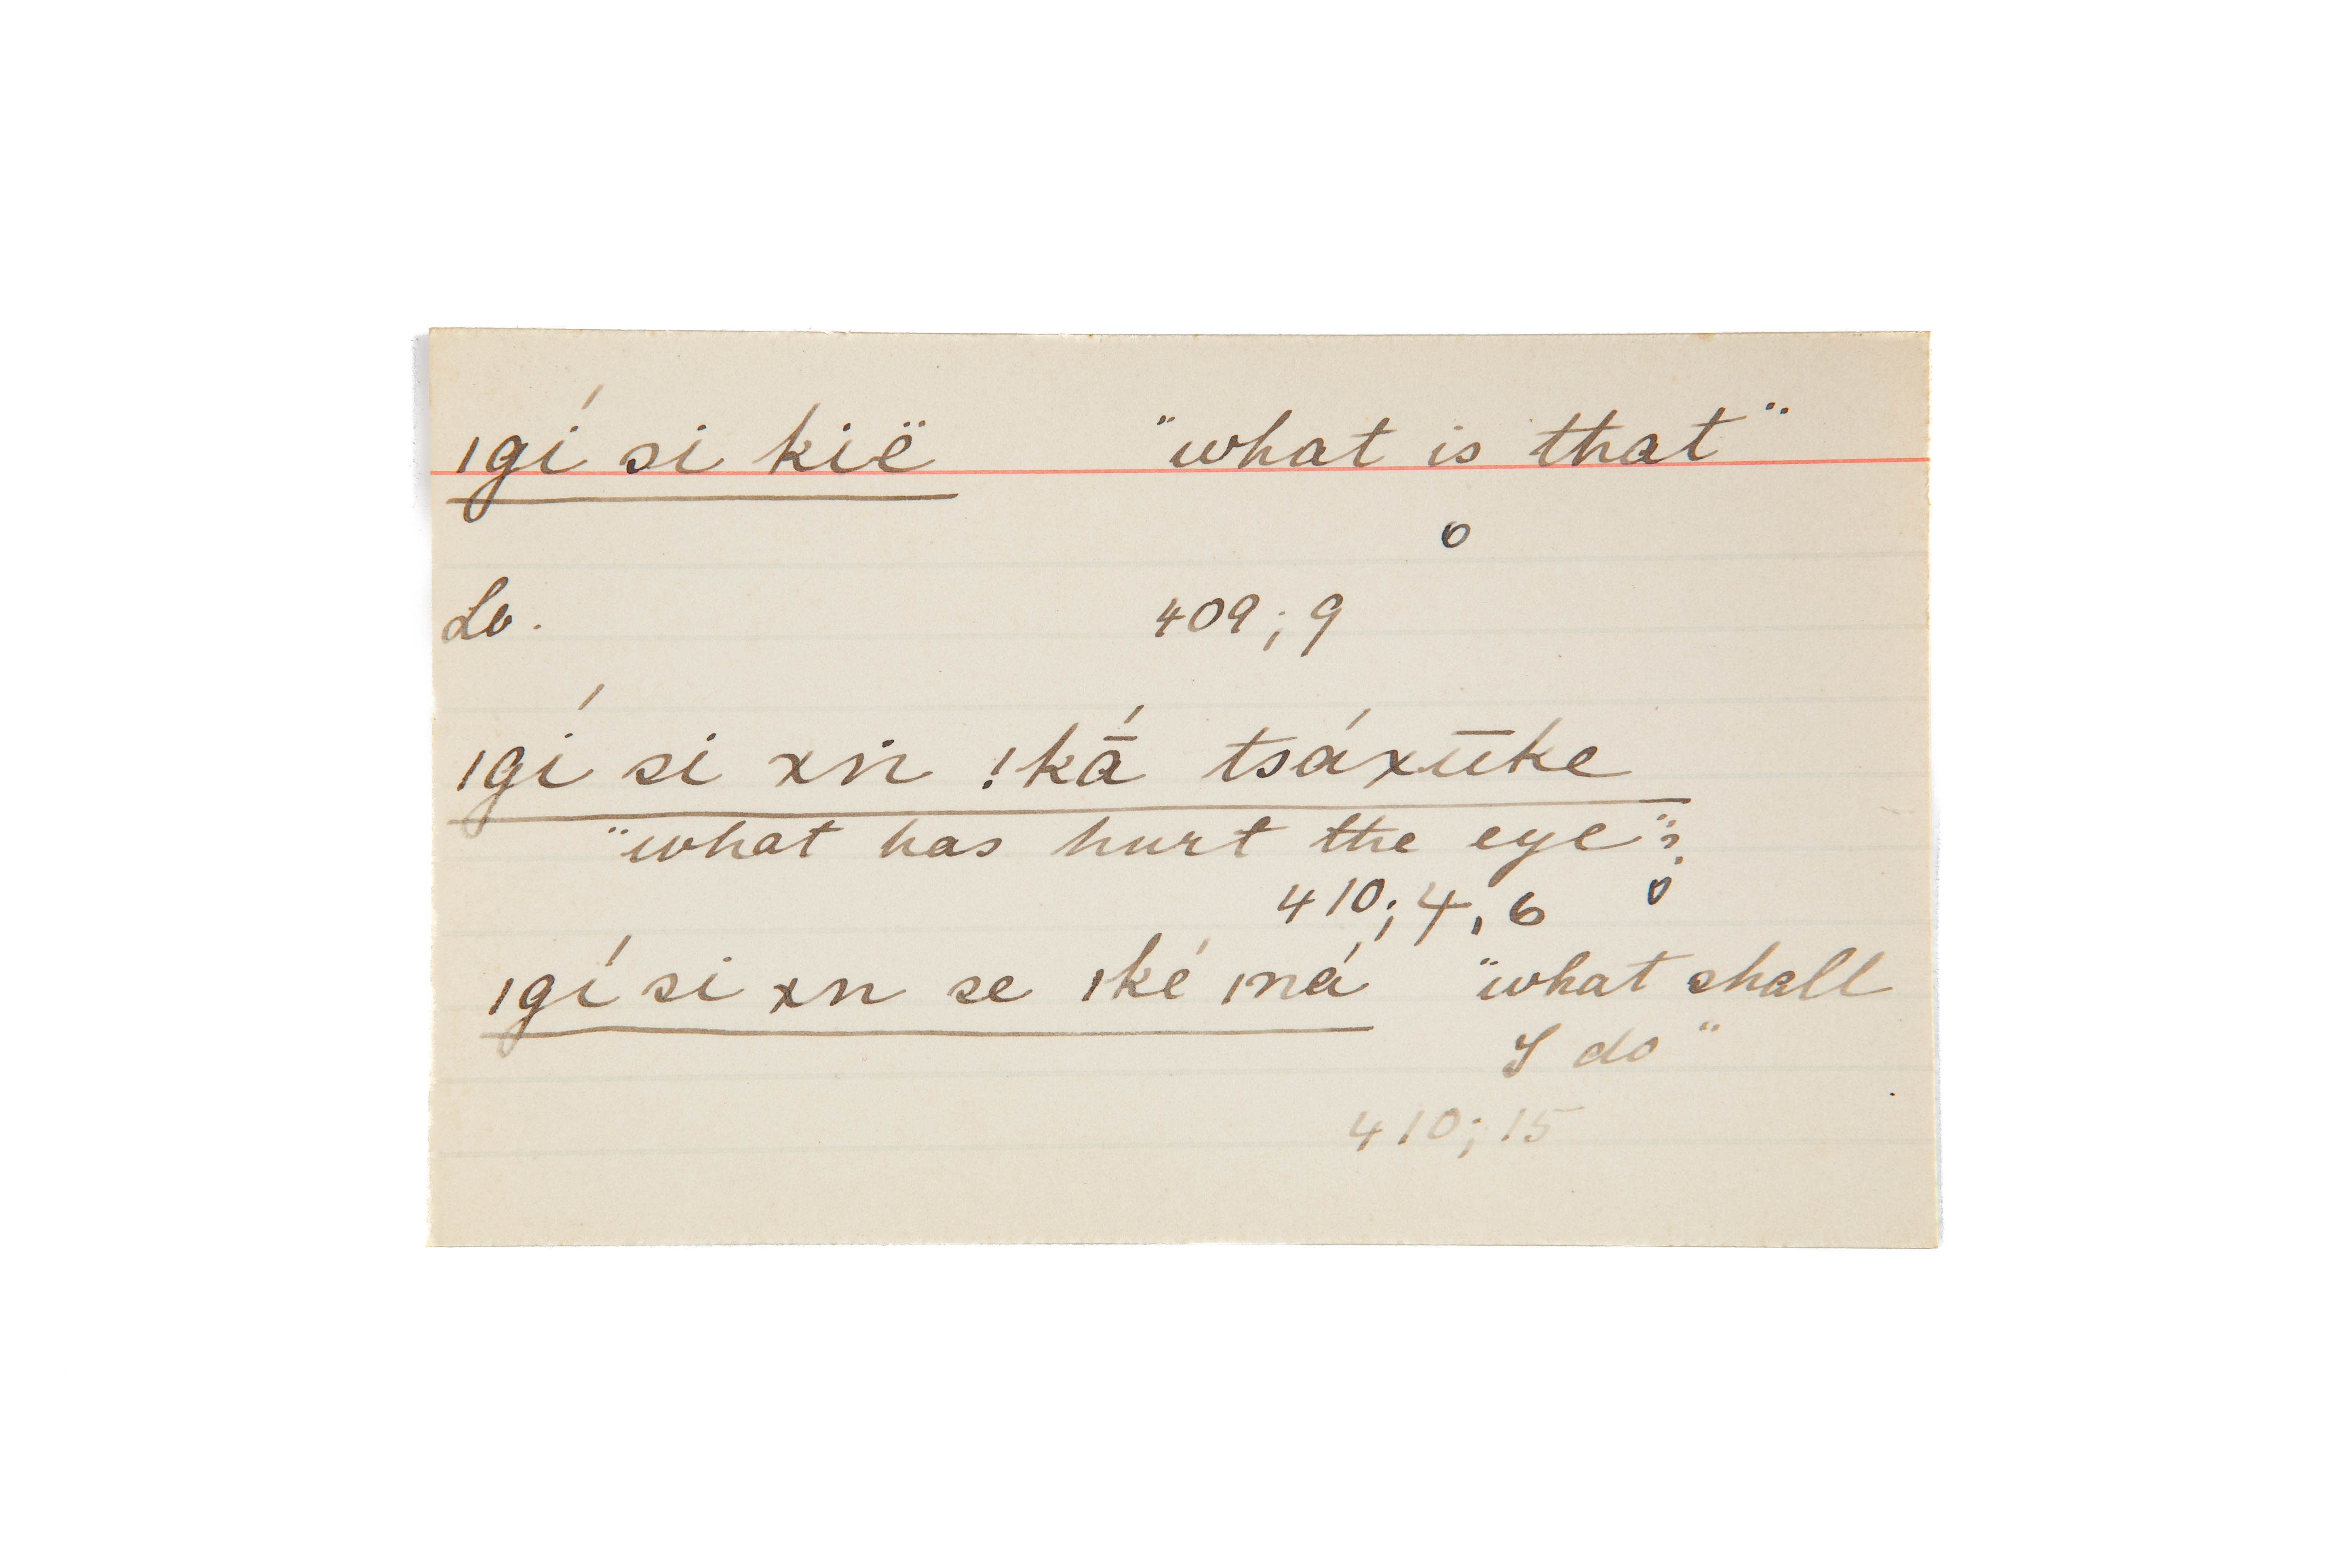 ıgí si kië "what is that"
o
Lo. 409; 9
ıgí si xń !kā́ tsáxūke
"what has hurt the eye"?
410; 4, 6 o
ıgí si xn se ıké ıná "what shall
I do"
410; 15